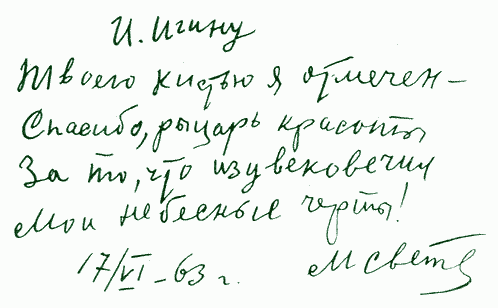 И. Игину
Твоею кистью я отмечен –
Спасибо, рыцарь красоты
За то, что изувековечил
Мои небесные черты!
17/VI – 63 г. М Свет